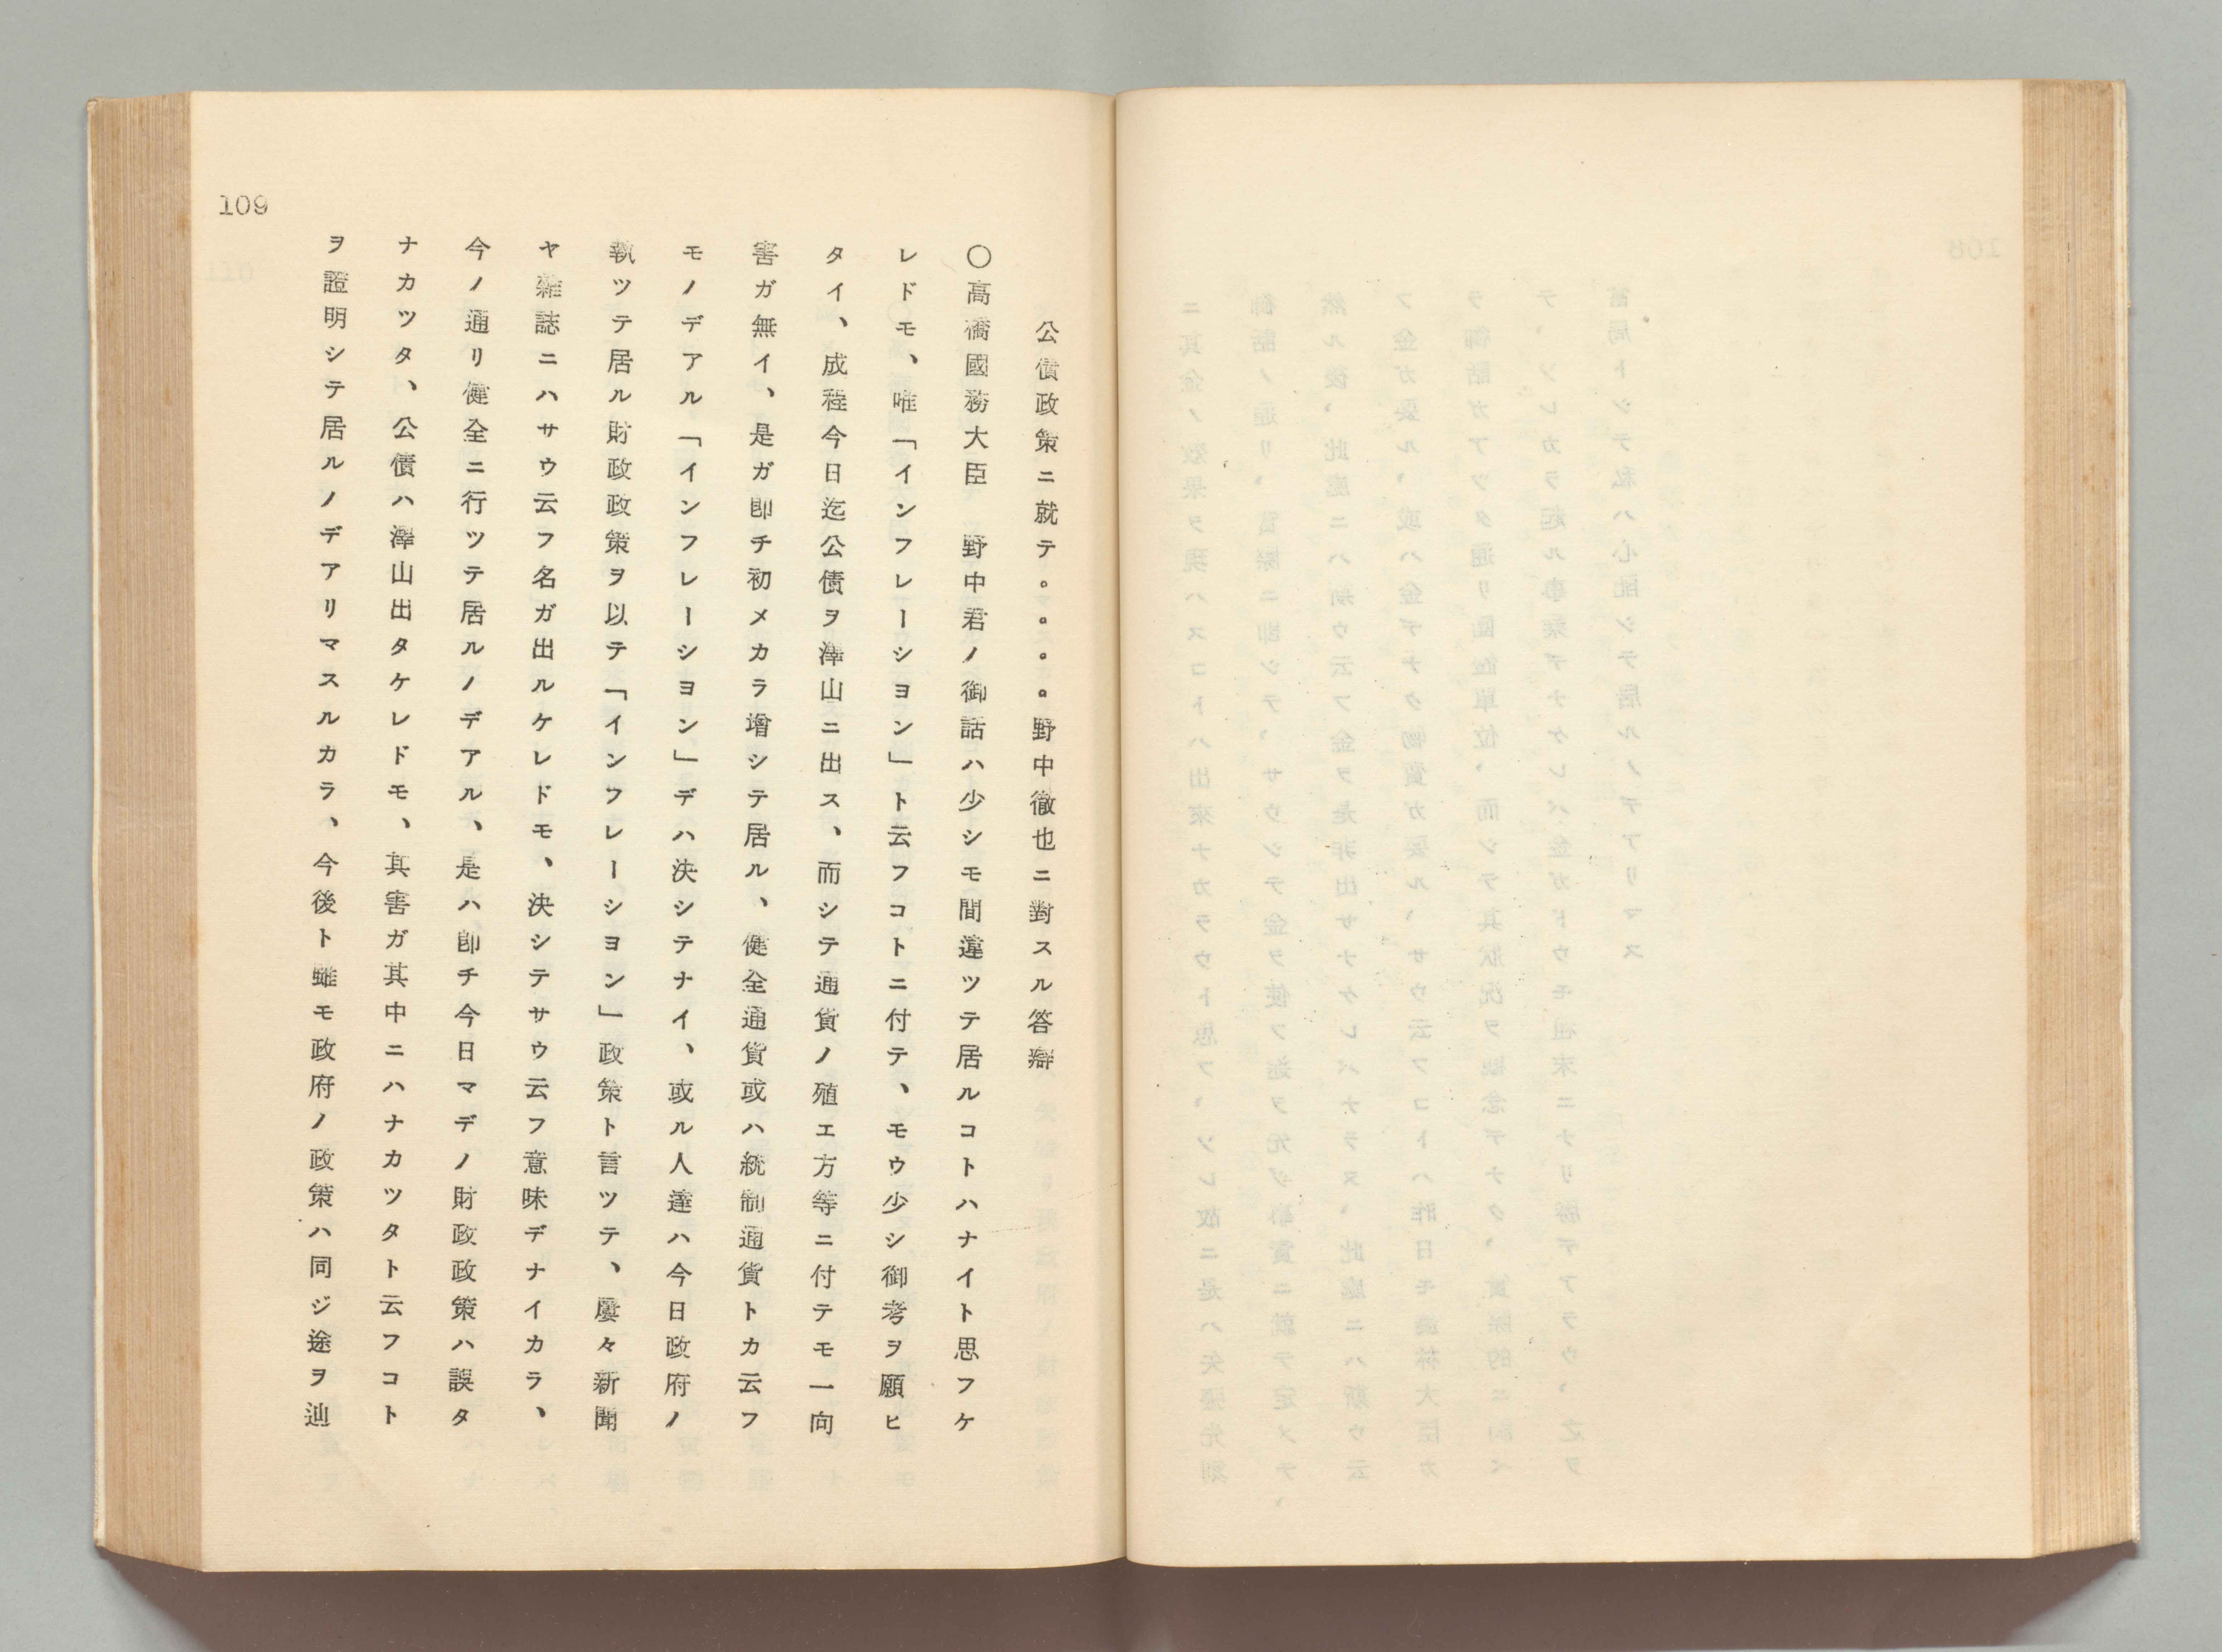 公債政策ニ就テ。。。。。野中徹也ニ對スル答辯
〇高橋國務大臣　野中君ノ御話ハ少シモ間違ツテ居ルコトハナイト思フケ
レドモ、唯「インフレーシヨン」ト云フコトニ付テ、モウ少シ御考ヲ願ヒ
タイ、成程今日迄公債ヲ澤山ニ出ス、而シテ通貨ノ殖エ方等ニ付テモ一向
害ガ無イ、是ガ卽チ初メカラ增シテ居ル、健全通貨或ハ統制通貨トカ云フ
モノデアル「インフレーシヨン」デハ決シテナイ、或ル人達ハ今日政府ノ
執ツテ居ル財政政策ヲ以テ「インフレーシヨン」政策ト言ツテ、屢々新聞
ヤ雜誌ニハサウ云フ名ガ出ルケレドモ、決シテサウ云フ意味デナイカラ、
今ノ通リ健全ニ行ツテ居ルノデアル、是ハ卽チ今日マデノ財政政策ハ誤タ
ナカツタ、公債ハ澤山出タケレドモ、其害ガ其中ニハナカツタト云フコト
ヲ證明シテ居ルノデアリマスルカラ、今後ト雖モ政府ノ政策ハ同ジ途ヲ辿
109